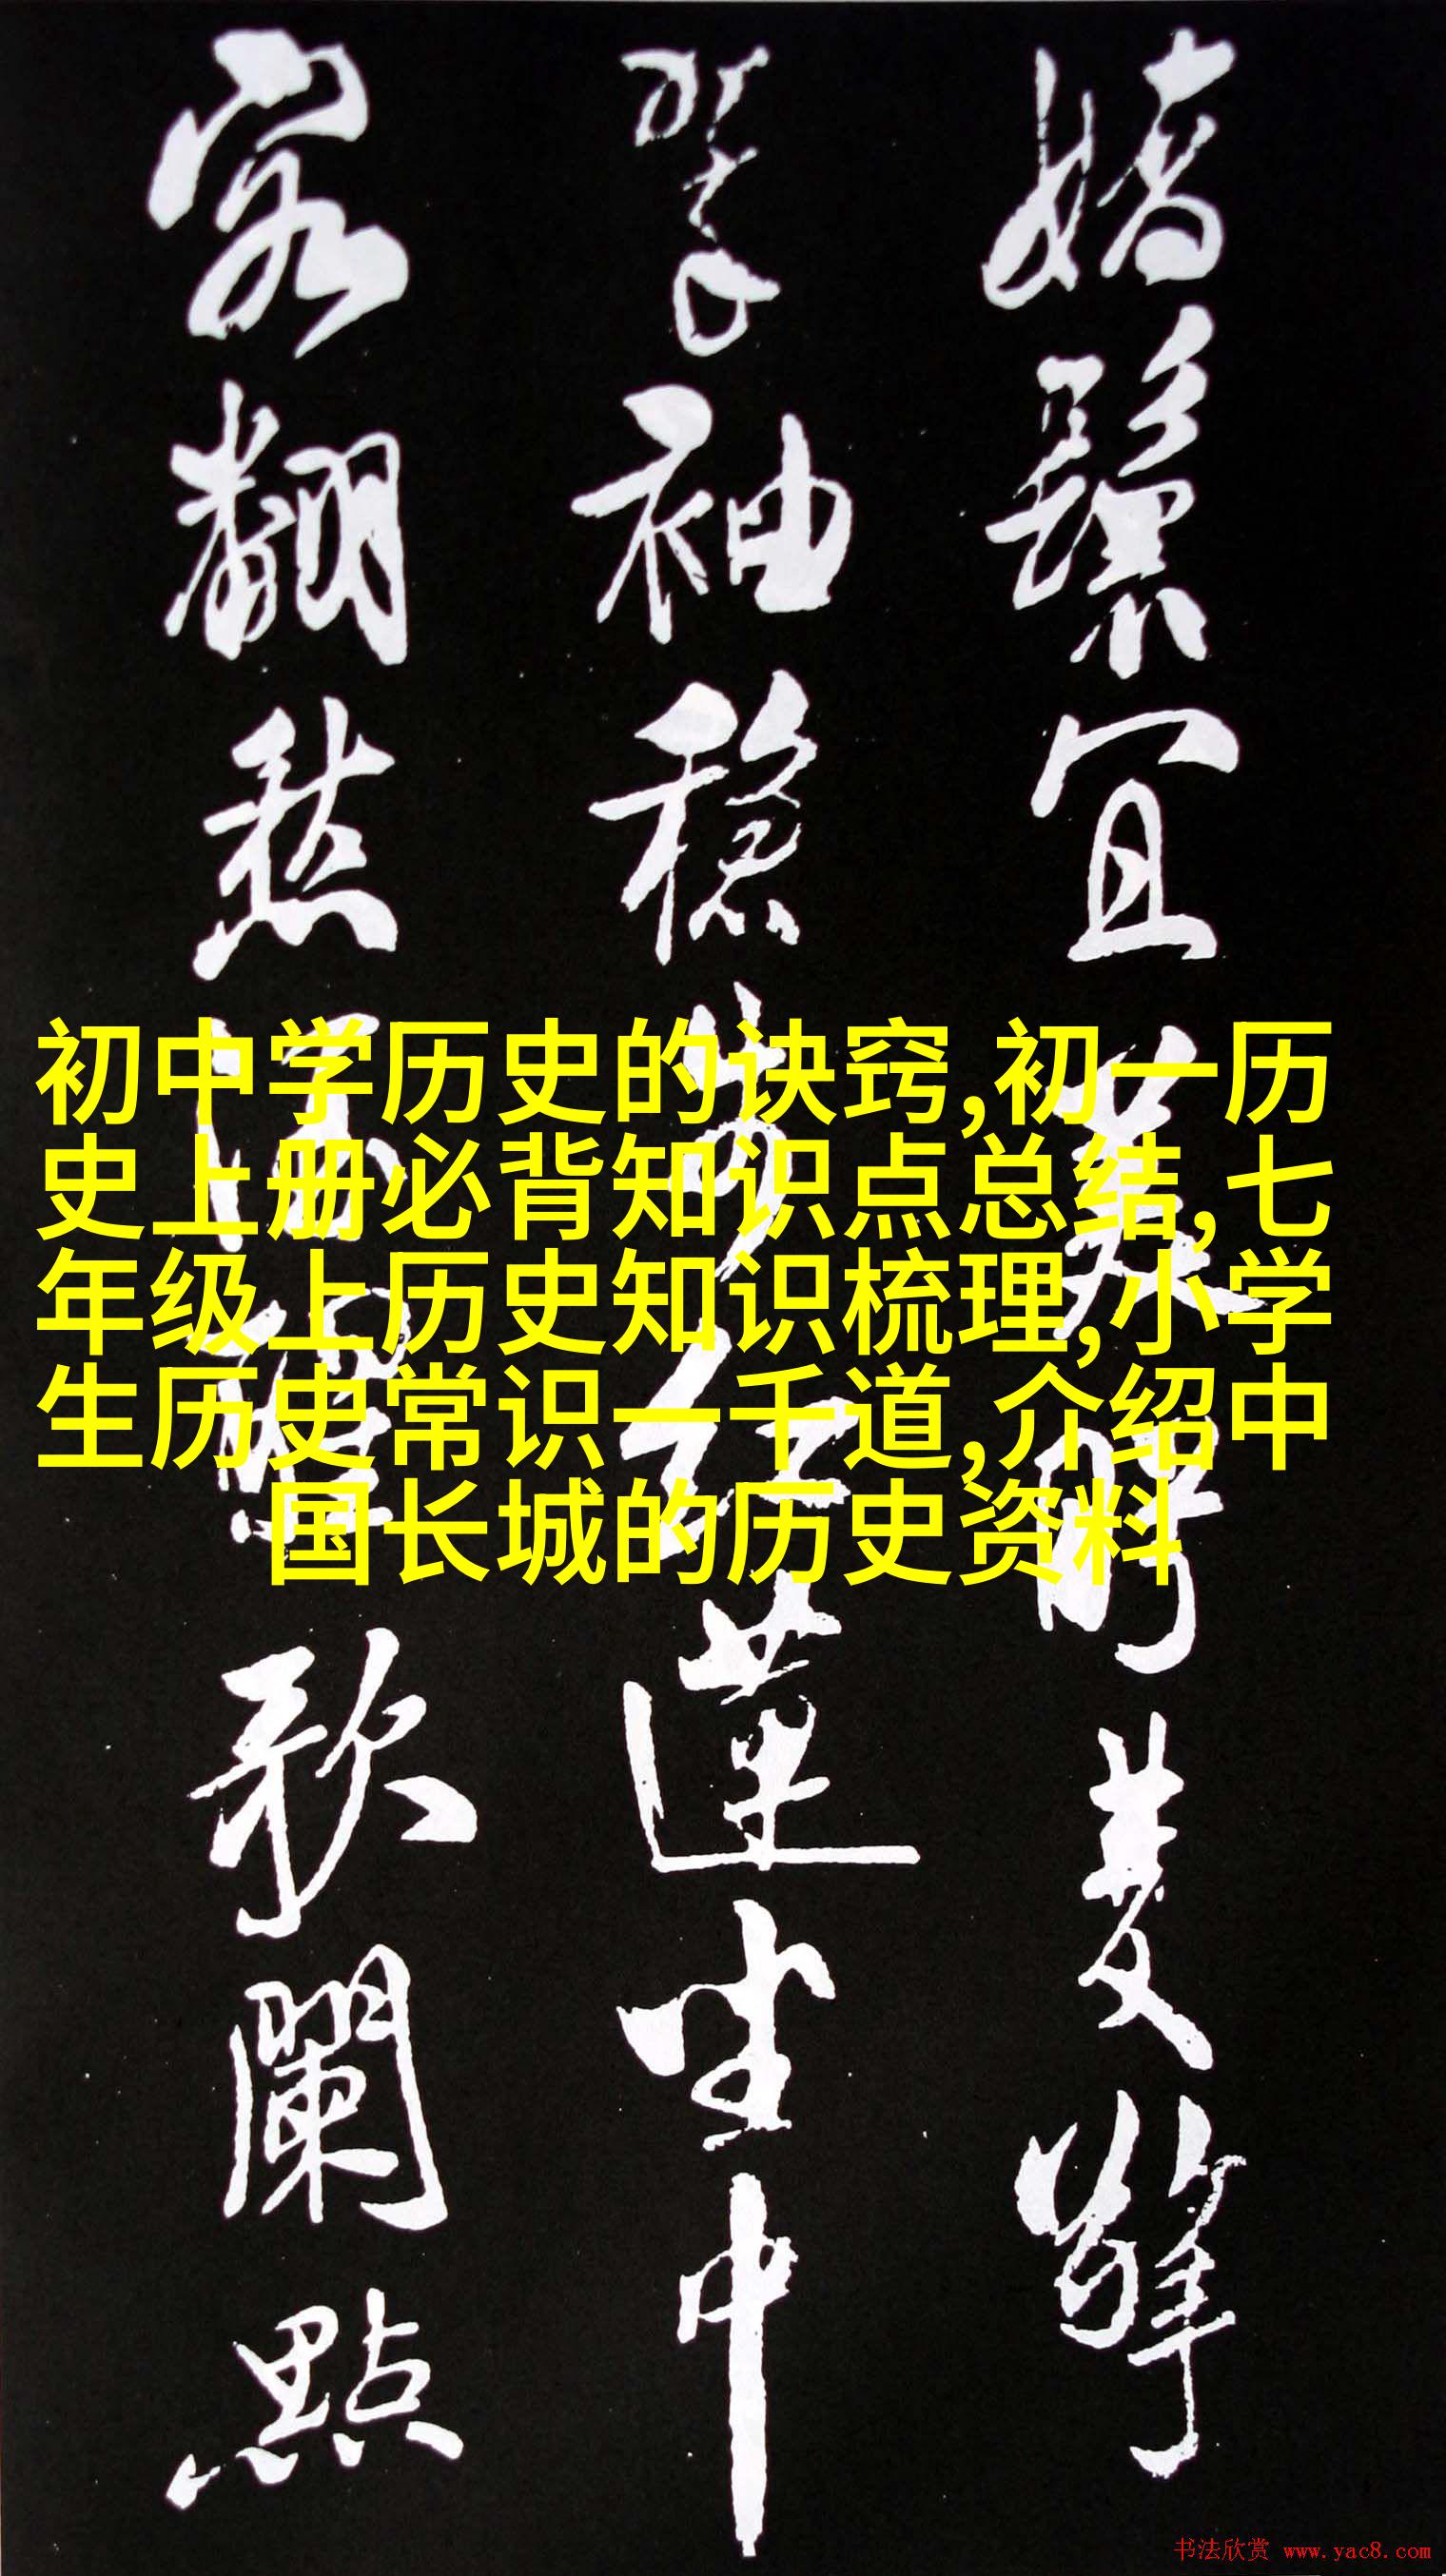 嬌鬟宜美
聘美擎
翠袖穩
紅蓮坐中
客翩然
歌闌點
初中学历史的诀窍,初一历
史上册必背知识点总结,七
年级上历史知识梳理,小学
生历史常识一千道,介绍中
国长城的历史资料
书法欣赏 www.yac8.com